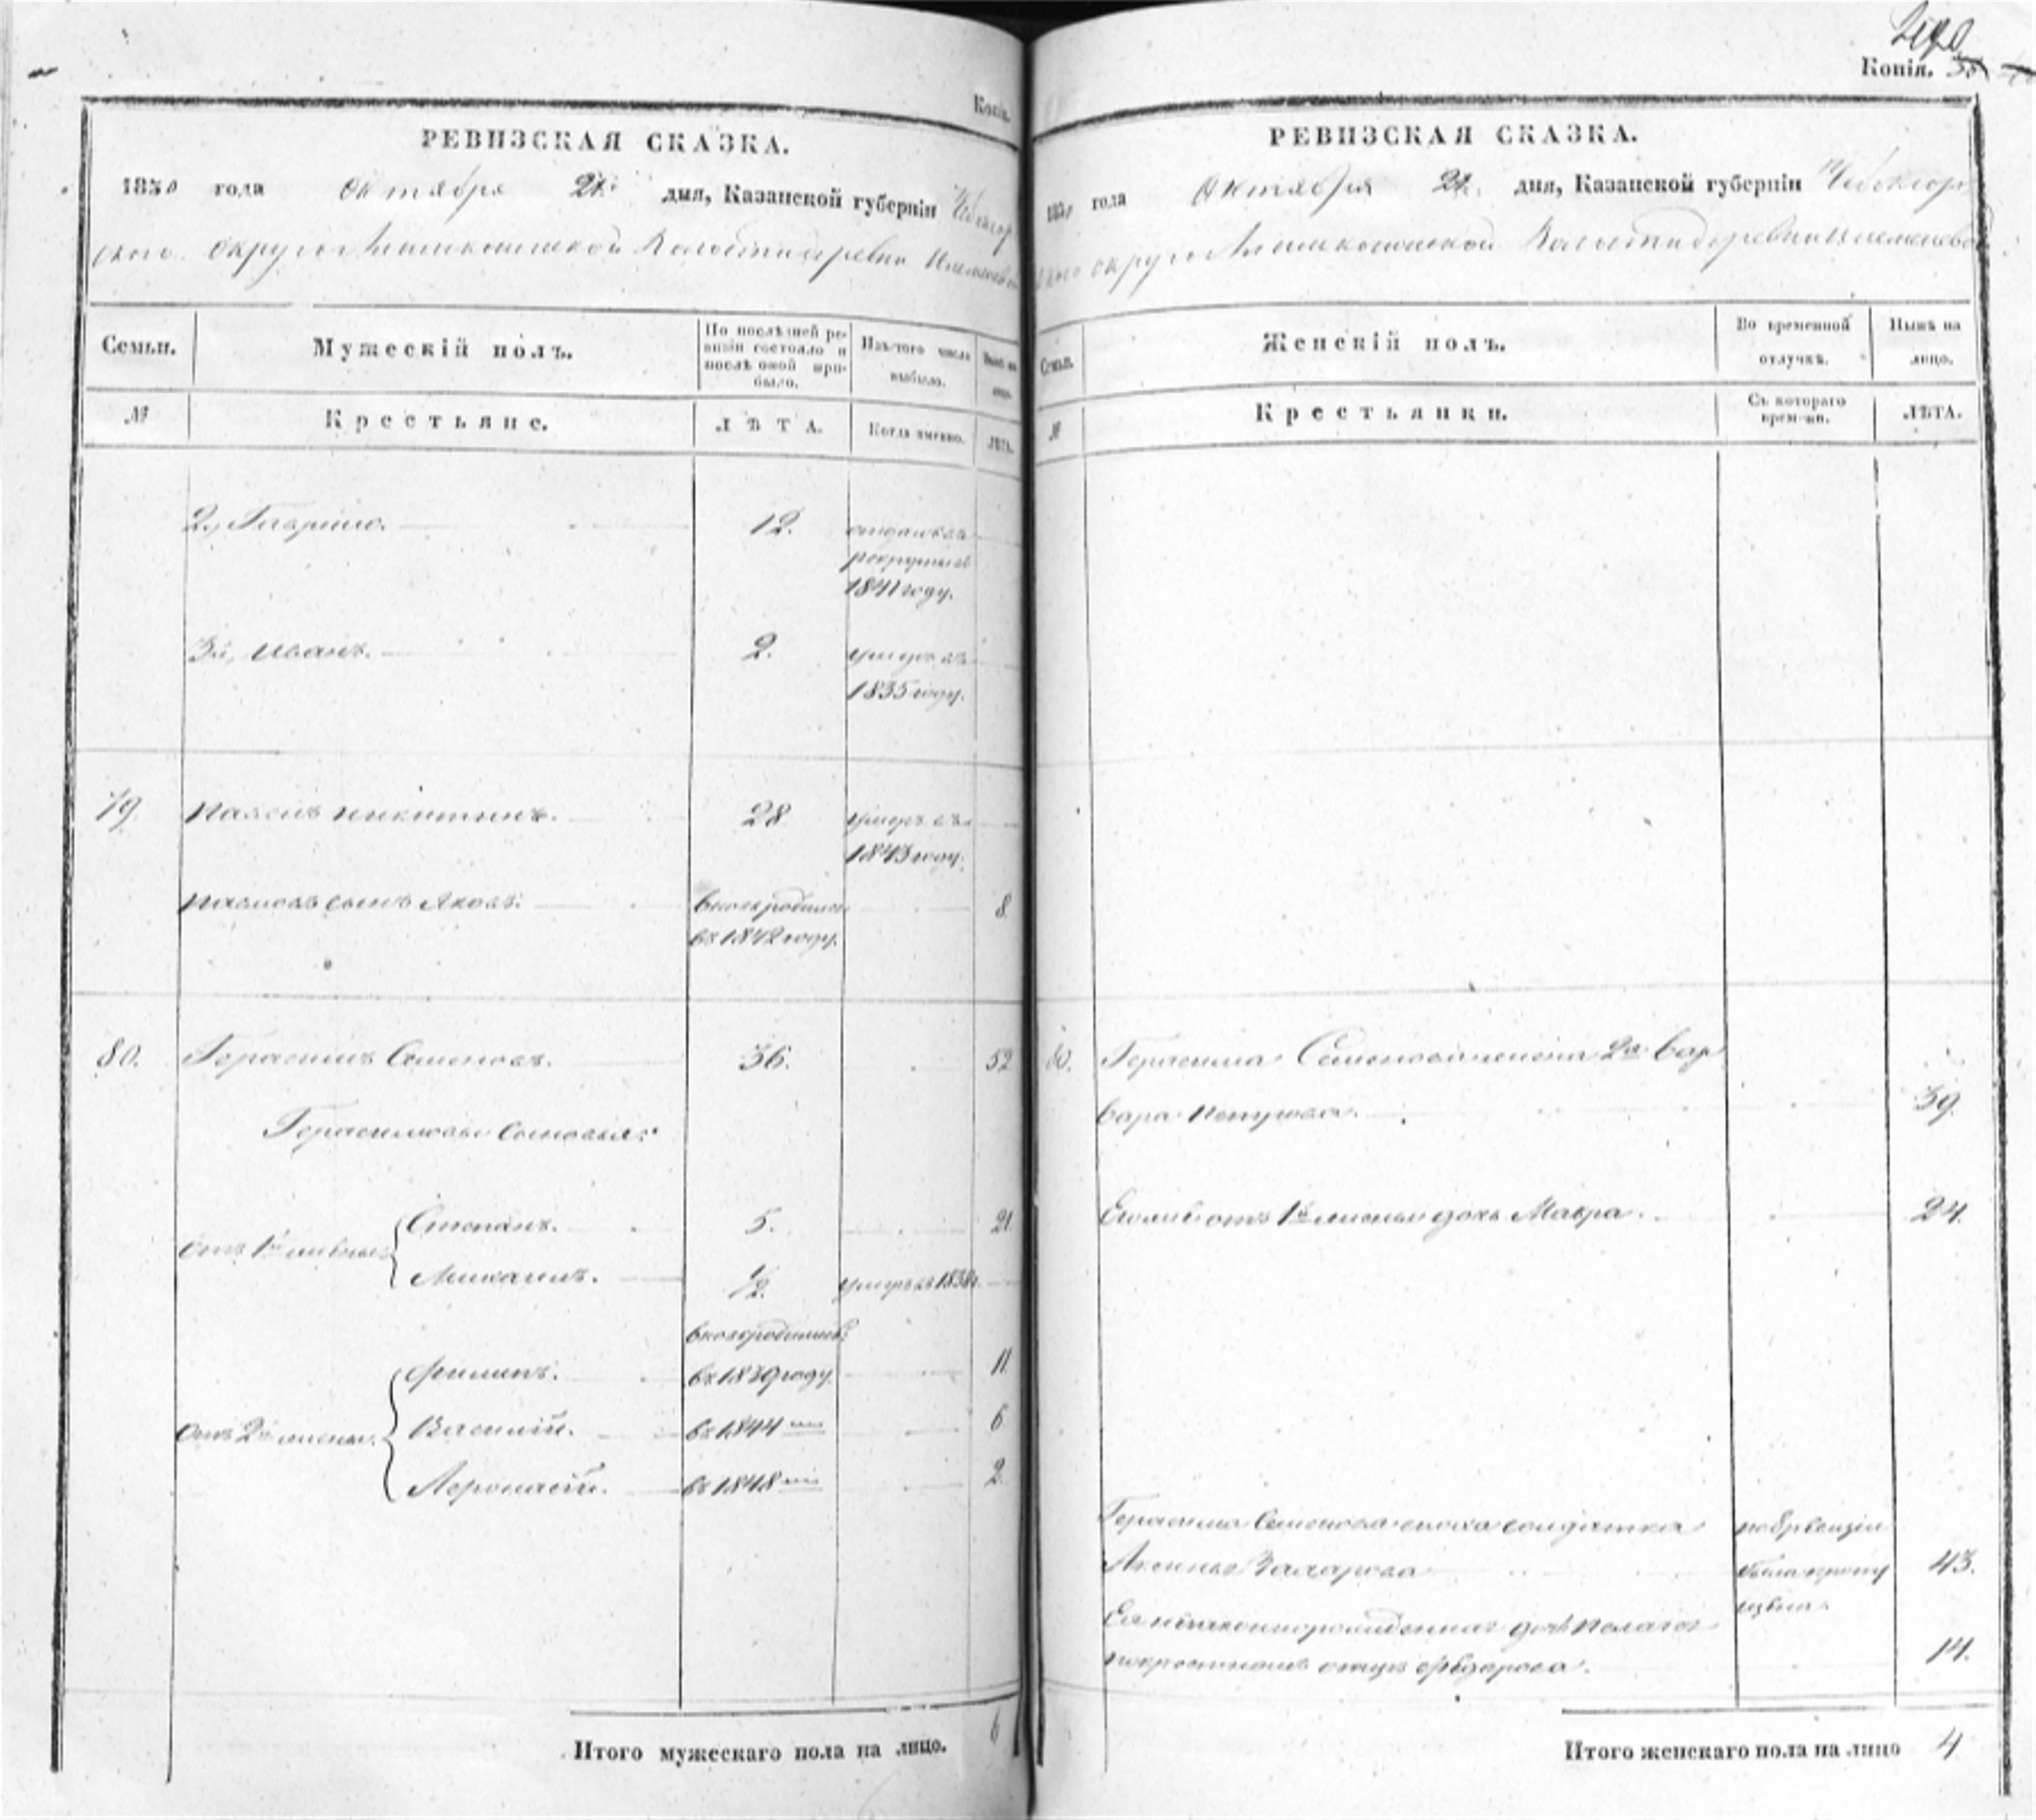 Копія.
РЕВИЗСКАЯ СКАЗКА.
1850 года Октября 21 дня, Казанской губерніи Чебоксар
скаго округа волости деревни
Семьи.
Мужескій полъ.
По послѣдней ре-
визіи состояло и
послѣ оной при-
было.
Изъ того числа
выбыло.
№
Крестьяне.
ЛѢТА.
Когда имянно.
ЛѢТА.
2., Гаврило. 12. отданъ въ
рекруты въ
1841 году.
3й, Иванъ. 2. умеръ въ
1835 году.
79. Никитинъ. 28 умеръ въ
1843 году.
сынъ Яковъ. вновь родился 8.
въ 1842 году.
80. Герасимъ Семеновъ. 36. 52
Герасимовы сыновья:
Отъ 1й жены Степанъ. 5. 21
1/2. умеръ въ
вновь родились
Отъ 2й жены Филипъ. въ 1839 году 11
Василій. въ 1844 6
Афонасій. въ 1848 2
Итого мужескаго пола на лицо. 6
Копія.
РЕВИЗСКАЯ СКАЗКА.
1850 года Октября 21 дня, Казанской губерніи Чебоксар
скаго округа Волости деревни
Семьи.
Женскій полъ.
Во временной
отлучкѣ.
Нынѣ на
лицо.
№
Крестьянки.
Съ котораго
времени.
ЛѢТА.
80. Герасима Семенова жена 2я Вар
вара Петрова. 39.
Его же отъ 1й жены дочь Мавра. 24.
Герасима Семенова сноха солдатка
Аксинья Захарова 43.
Ея незаконнорожденная дочь Пелагея
по крестному отцу Федорова. 14.
Итого женскаго пола на лицо 4